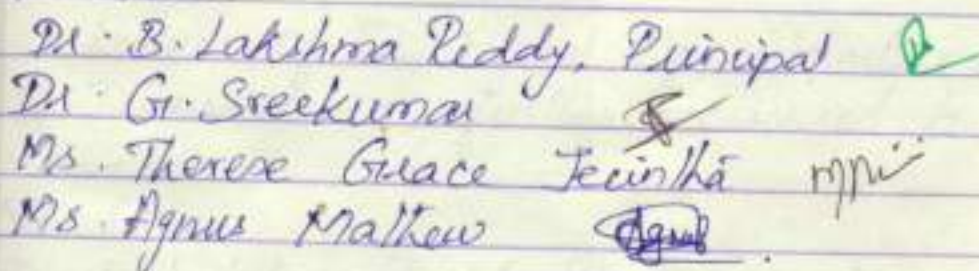 Dr. B. Lakshma Reddy, Principal
Dr. G. Sreekumar
Ms. Therese Grace Jecintha
Ms. Agnus Mathew Agnus